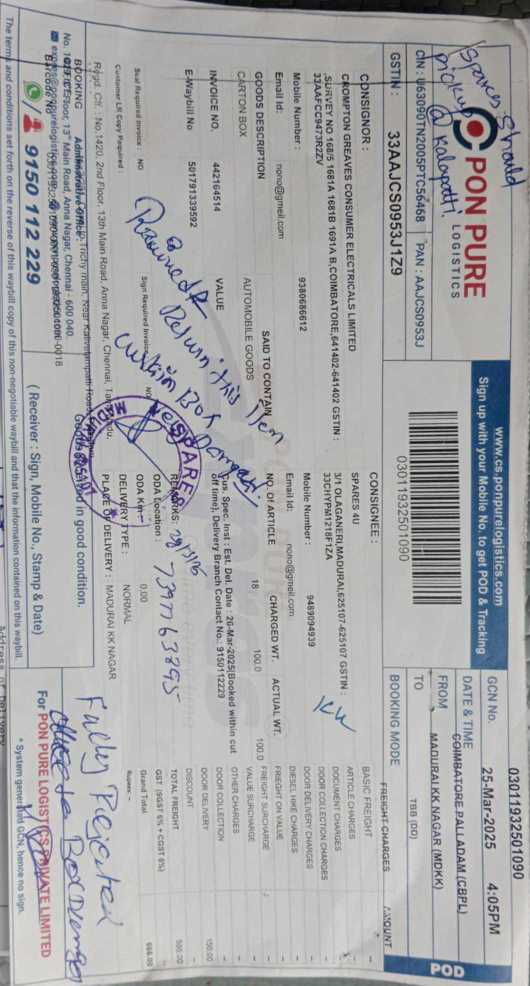 Spares Should
pickup
@ Kalapatti.
PON PURE
LOGISTICS
CIN : U63090TN2005PTC56468
PAN : AAJCS0953J
GSTIN : 33AAJCS0953J1Z9
www.cs.ponpurelogistics.com
Sign up with your Mobile No. to get POD & Tracking
03011932501090
03011932501090
GCN No. 25-Mar-2025 4:05PM
DATE & TIME COIMBATORE PALLADAM (CBPL)
FROM MADURAI.KK.NAGAR (MDKK)
TO TBB (DD)
BOOKING MODE
POD
CONSIGNOR :
CROMPTON GREAVES CONSUMER ELECTRICALS LIMITED
,SURVEY NO 16B/5 1681A 1681B 1691A B,COIMBATORE,641402-641402 GSTIN :
33AAFCC9473R2ZV
Mobile Number : 9380686612
Email Id: nono@gmeil.com
CONSIGNEE :
SPARES 4U
3/1 OLAGANERI,MADURAI,625107-625107 GSTIN :
33CHYPM1218F1ZA
Mobile Number : 9489094939
Email Id: nono@gmail.com
KK
GOODS DESCRIPTION SAID TO CONTAIN NO. OF ARTICLE CHARGED WT. ACTUAL WT.
CARTON BOX AUTOMOBILE GOODS 18 100.0 100.0
INVOICE NO. 442164514 VALUE
E-Waybill No 501791339592
Cust. Spec. Inst : Est. Del. Date : 26-Mar-2025(Booked within cut
off time), Delivery Branch Contact No.: 9150112229
FREIGHT CHARGES AMOUNT
BASIC FREIGHT
ARTICLE CHARGES
DOCUMENT CHARGES
DOOR COLLECTION CHARGES
DOOR DELIVERY CHARGES
DIESEL HIKE CHARGES
FREIGHT ON VALUE
FREIGHT SURCHARGE
VALUE SURCHARGE
OTHER CHARGES
DOOR COLLECTION
DOOR DELIVERY 150.00
DISCOUNT
TOTAL FREIGHT
GST (SGST 6% + CGST 6%)
Grand Total
Rupees :
Return this item
Box
Damaged.
SPARES
REMARKS:
7397763895
ODA Location :
ODA Km : 0.00
DELIVERY TYPE : NORMAL
PLACE OF DELIVERY : MADURAI KK NAGAR
Seal Required Invoice : NO
Sign Required Invoice : NO
Customer LR Copy Required :
Regd. Off. : No.1420, 2nd Floor, 13th Main Road, Anna Nagar, Chennai,
BOOKING
Administrative office
13th Main Road, Anna Nagar, Chennai - 600 040.
9150 112 229
Goods received in good condition.
( Receiver : Sign, Mobile No., Stamp & Date)
Fully Rejected
For PON PURE LOGISTICS PRIVATE LIMITED
* System generated GCN, hence no sign.
The terms and conditions set forth on the reverse of this waybill copy of this non-negotiable waybill and that the information contained on this waybill.